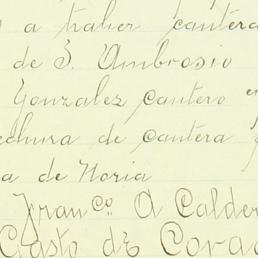 a traher cantera
de S. Ambrosio
Gonzalez cantero en
echura de cantera p
a de Noria
Franco. A Calder
Gasto de Corac